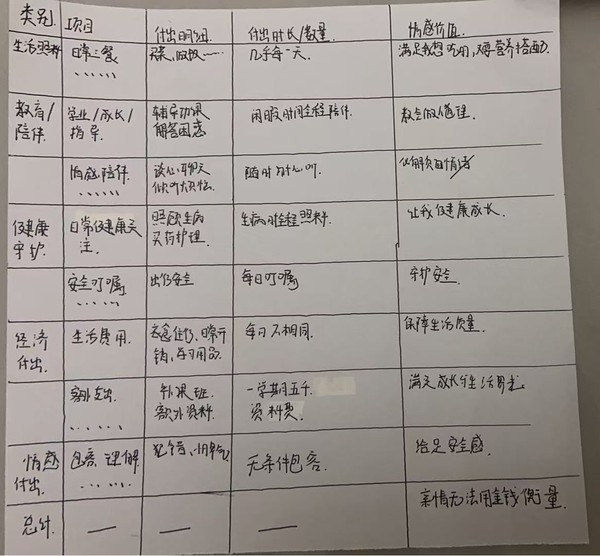 类别 项目 付出明细 付出时长/数量 情感价值
生活照料 日常三餐 买菜、做饭…… 几乎每一天. 满足我想吃的,又要营养搭配
……
教育/ 学业/成长/ 辅导功课 闲暇时间全程陪伴. 教会做人道理.
陪伴 指导. 解答困惑
情感陪伴. 谈心、聊天 随时随心听 化解负面情绪
…… 倾听大烦恼
健康 日常健康关 照顾生病 生病时全程照料. 让我健康成长.
守护. 注. 买药护理
安全叮嘱 出行安全 每日叮嘱 守护安全.
……
经济 生活费用. 衣食住行、日常开 每月不相同. 保障生活质量.
付出 销、学习用品.
额外支出. 补课班. 一学期五千 满足成长行生活男走
…… 额外资料. 资料费.
情感 包容、理解. 犯错、闹脾气 无条件包容. 给足安全感.
付出. ……
总计. — — — 亲情无法用金钱衡量.